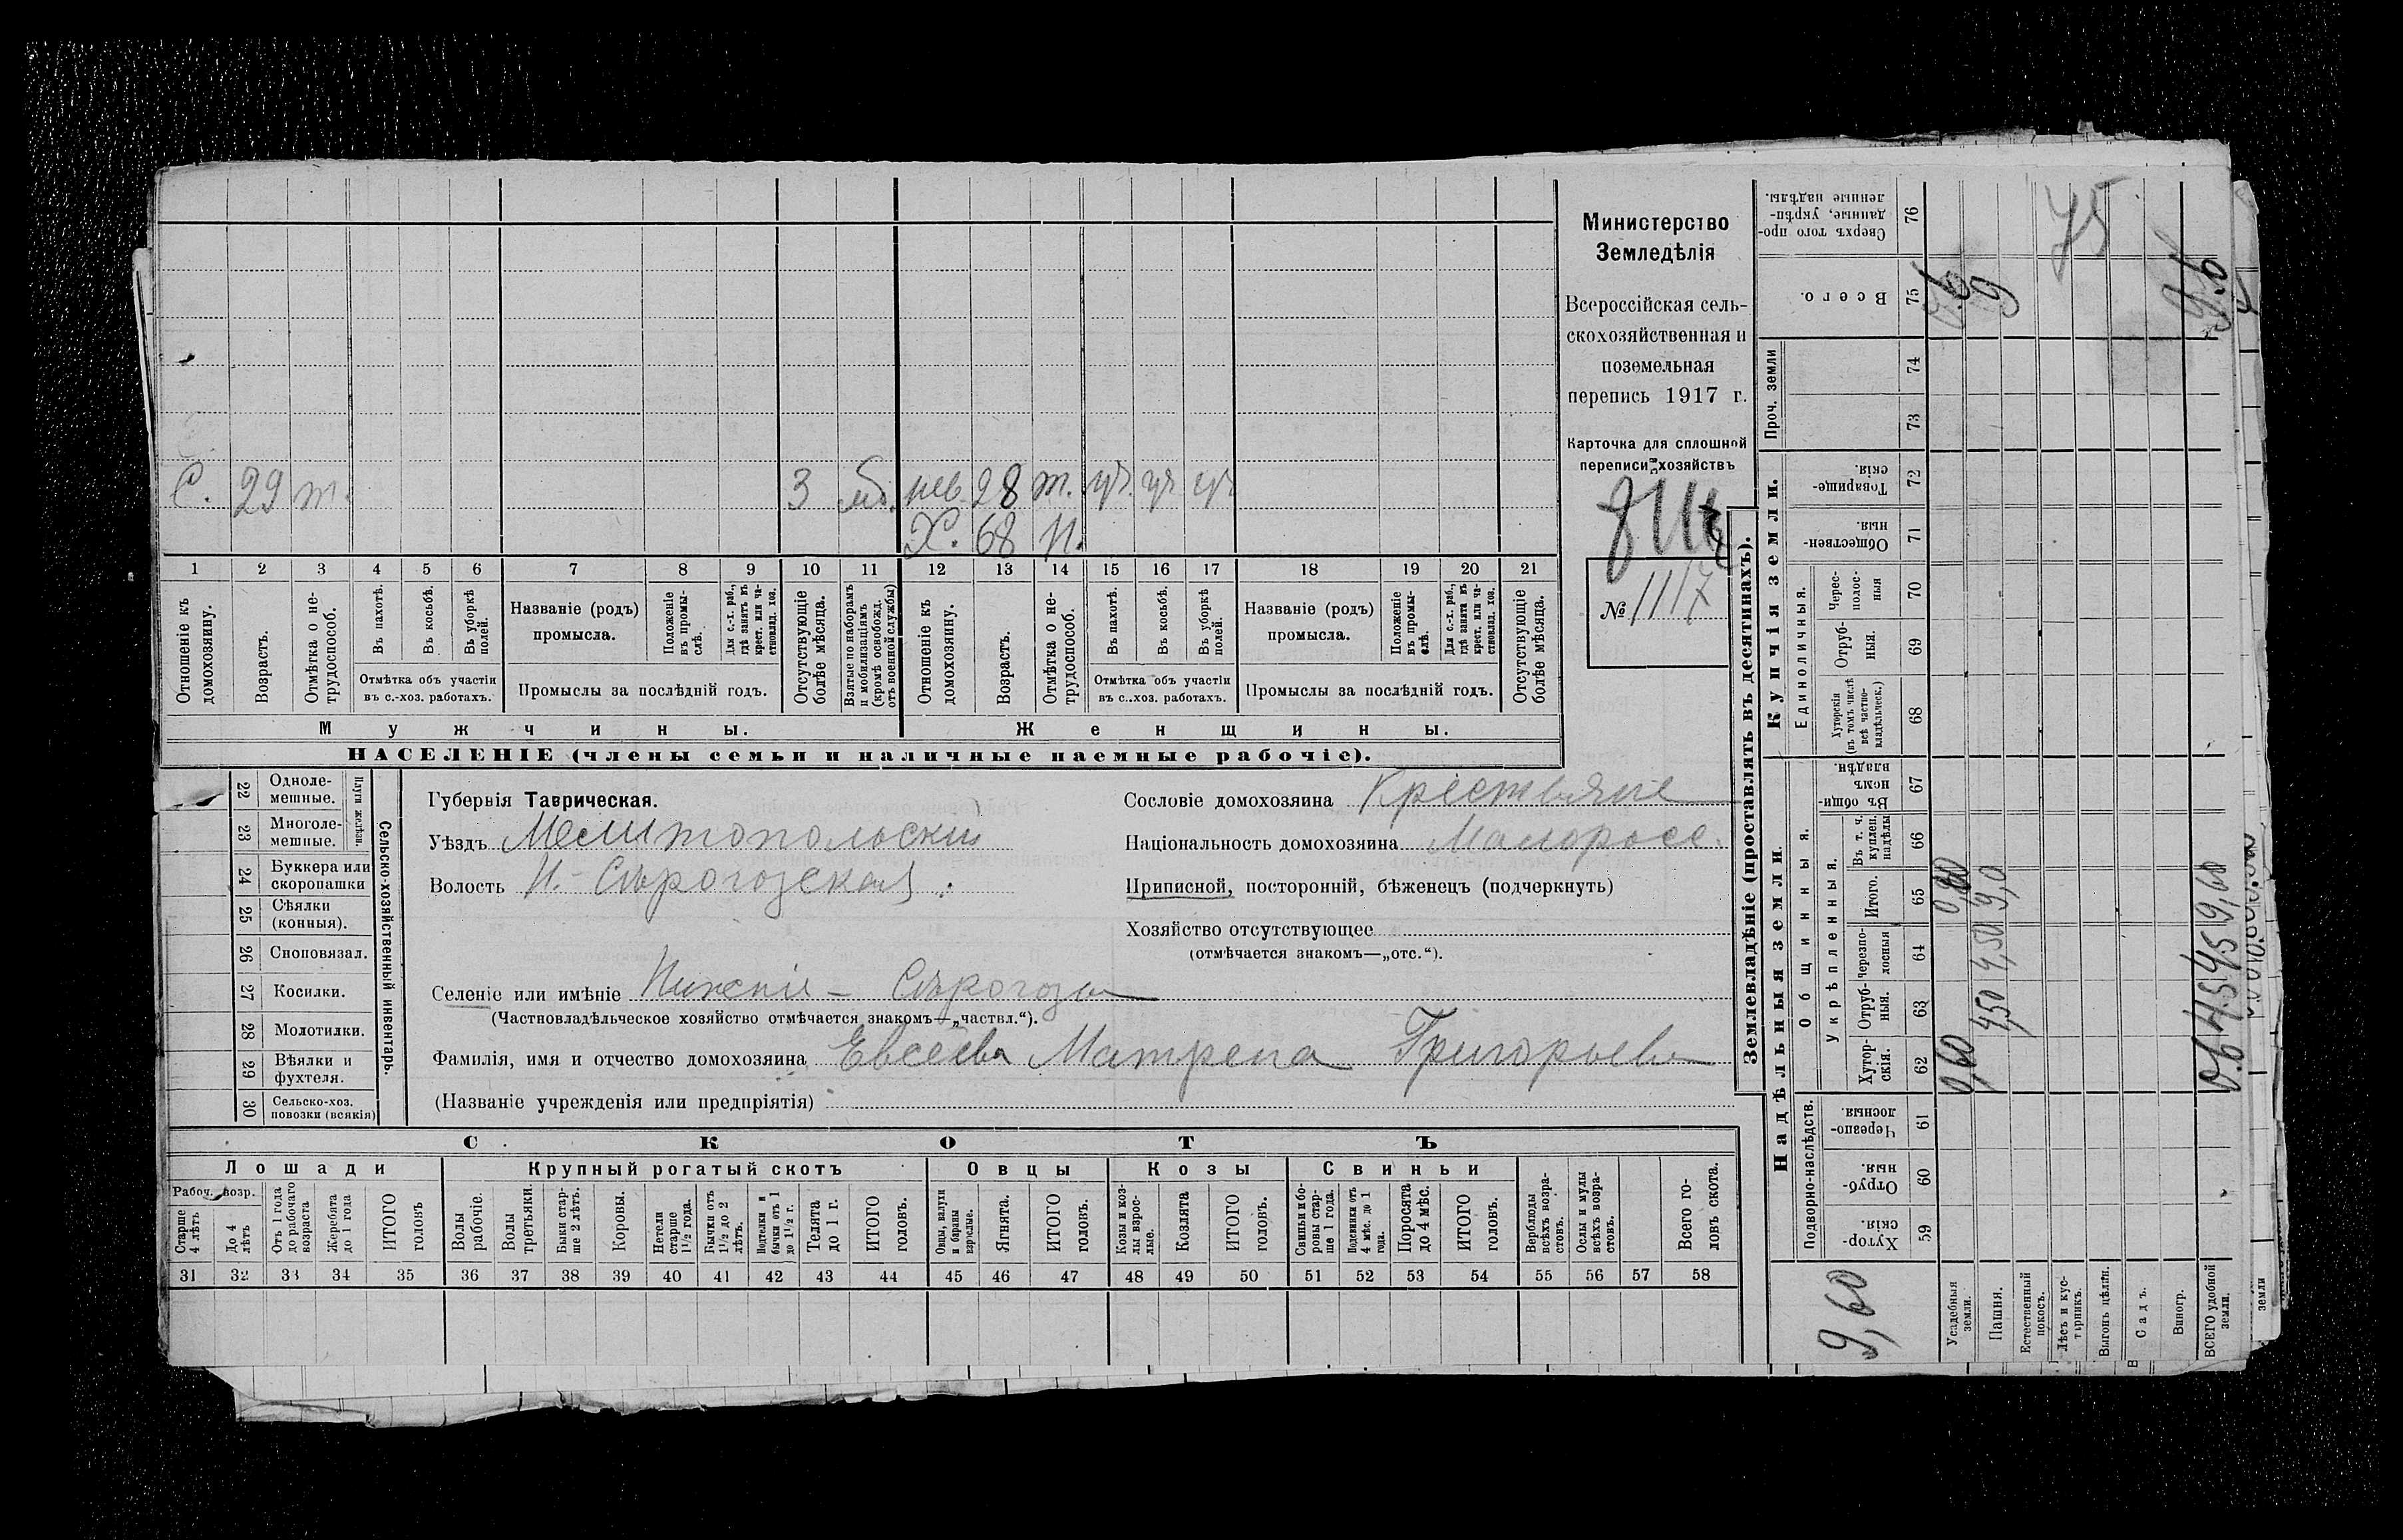 С. 29 т. 3 мб. нев. 28 т. уч. уч. уч.
Х. 68 н.
1 2 3 4 5 6 7 8 9 10 11 12 13 14 15 16 17 18 19 20 21
Отношеніе къ домохозяину.
Возрастъ.
Отмѣтка о не-
трудоспособ.
Въ пахотѣ.
Въ косьбѣ.
Въ уборкѣ
полей.
Отмѣтка объ участіи
въ с.-хоз. работахъ.
Названіе (родъ)
промысла.
Положеніе
въ промы-
слѣ.
Для с.-х. раб.,
гдѣ занятъ въ
крест. или ча-
стновлад. хоз.
Промыслы за послѣдній годъ.
Отсутствующіе
болѣе мѣсяца.
Взятые по наборамъ
и мобилизаціямъ
(кромѣ освобожд.
отъ военной службы)
Отношеніе къ
домохозяину.
Возрастъ.
Отмѣтка о не-
трудоспособ.
Въ пахотѣ.
Въ косьбѣ.
Въ уборкѣ
полей.
Отмѣтка объ участіи
въ с.-хоз. работахъ.
Названіе (родъ)
промысла.
Положеніе
въ промы-
слѣ.
Для с.-х. раб.,
гдѣ занята въ
крест. или ча-
стновлад. хоз.
Промыслы за послѣдній годъ.
Отсутствующіе
болѣе мѣсяца.
Мужчины. Женщины.
НАСЕЛЕНІЕ (члены семьи и наличные наемные рабочіе).
Министерство
Земледѣлія
Всероссійская сель-
скохозяйственная и
поземельная
перепись 1917 г.
Карточка для сплошной
переписи хозяйствъ
№ 1117
22 Одноле-
мешные.
23 Многоле-
мешные.
Плуги желѣзн.
24 Буккера или
скоропашки
25 Сѣялки
(конныя).
26 Сноповязал.
27 Косилки.
28 Молотилки.
29 Вѣялки и
фухтеля.
30 Сельско-хоз.
повозки (всякія)
Сельско-хозяйственный инвентарь.
Губернія Таврическая.
Уѣздъ Мелитопольскій
Волость Н.-Сѣрогозская
Сословіе домохозяина Крестьяне
Національность домохозяина Малоросс.
Приписной, посторонній, бѣженецъ (подчеркнуть)
Хозяйство отсутствующее
(отмѣчается знакомъ—„отс.“).
Селеніе или имѣніе Нижніе - Сѣрогозы
(Частновладѣльческое хозяйство отмѣчается знакомъ—„частвл.“).
Фамилія, имя и отчество домохозяина Евсеева Матрена Григорьева
(Названіе учрежденія или предпріятія)
СКОТЪ
Лошади Крупный рогатый скотъ Овцы Козы Свиньи
Рабоч. возр.
Старше
4 лѣтъ
До 4
лѣтъ
Отъ 1 года
до рабочаго
возраста
Жеребята
до 1 года
ИТОГО
головъ
Волы
рабочіе.
Волы
третьяки.
Быки стар-
ше 2 лѣтъ.
Коровы.
Нетели
старше
1 1/2 года.
Бычки отъ
1 1/2 до 2
лѣтъ.
Подтелки и
бычки отъ 1
до 1 1/2 г.
Телята
до 1 г.
ИТОГО
головъ.
Овцы, валухи
и бараны
взрослые.
Ягнята.
ИТОГО
головъ.
Козы и коз-
лы взрос-
лые.
Козлята
ИТОГО
головъ.
Свиньи и бо-
ровы стар-
ше 1 года.
Подсвинки отъ
4 мѣс. до 1
года.
Поросята
до 4 мѣс.
ИТОГО
головъ.
Верблюды
всѣхъ возра-
стовъ.
Ослы и мулы
всѣхъ возра-
стовъ.
Всего го-
ловъ скота.
31 32 33 34 35 36 37 38 39 40 41 42 43 44 45 46 47 48 49 50 51 52 53 54 55 56 57 58
Землевладѣніе (проставлять въ десятинахъ).
Надѣльныя земли. Купчія земли. Проч. земли
Подворно-наслѣдств. Общинныя. Единоличныя.
Укрѣпленныя.
Хутор-
скія. 59
Отруб-
ныя. 60
Черезпо-
лосныя. 61
Хутор-
скія. 62
Отруб-
ныя. 63
Черезпо-
лосныя 64
Итого. 65
Въ т. ч.
куплен.
надѣлы 66
Въ общин-
номъ
владѣн. 67
Хуторскія
(въ томъ числѣ
всѣ частно-
владѣльческ.) 68
Отруб-
ныя. 69
Черес-
полос-
ныя 70
Обществен-
ныя. 71
Товарище-
скія. 72
73
74
Всего. 75
Сверхъ того про-
данные, укрѣп-
ленные надѣлы. 76
9,60
Усадебныя
земли. 0,60 0,60 0.6
Пашня. 4,50 4,50 9,0 9
Естественный
покосъ.
Лѣсъ и кус-
тарникъ.
Выгонъ цѣлин.
Садъ.
Виногр.
ВСЕГО удобной
земли. 0.6 4.5 4.5 9,60 9.6
75
земли